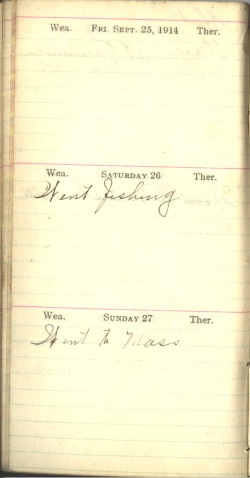 Wea. FRI. SEPT. 25, 1914 Ther.
Wea. SATURDAY 26 Ther.
Went fishing
Wea. SUNDAY 27 Ther.
Went to Mass